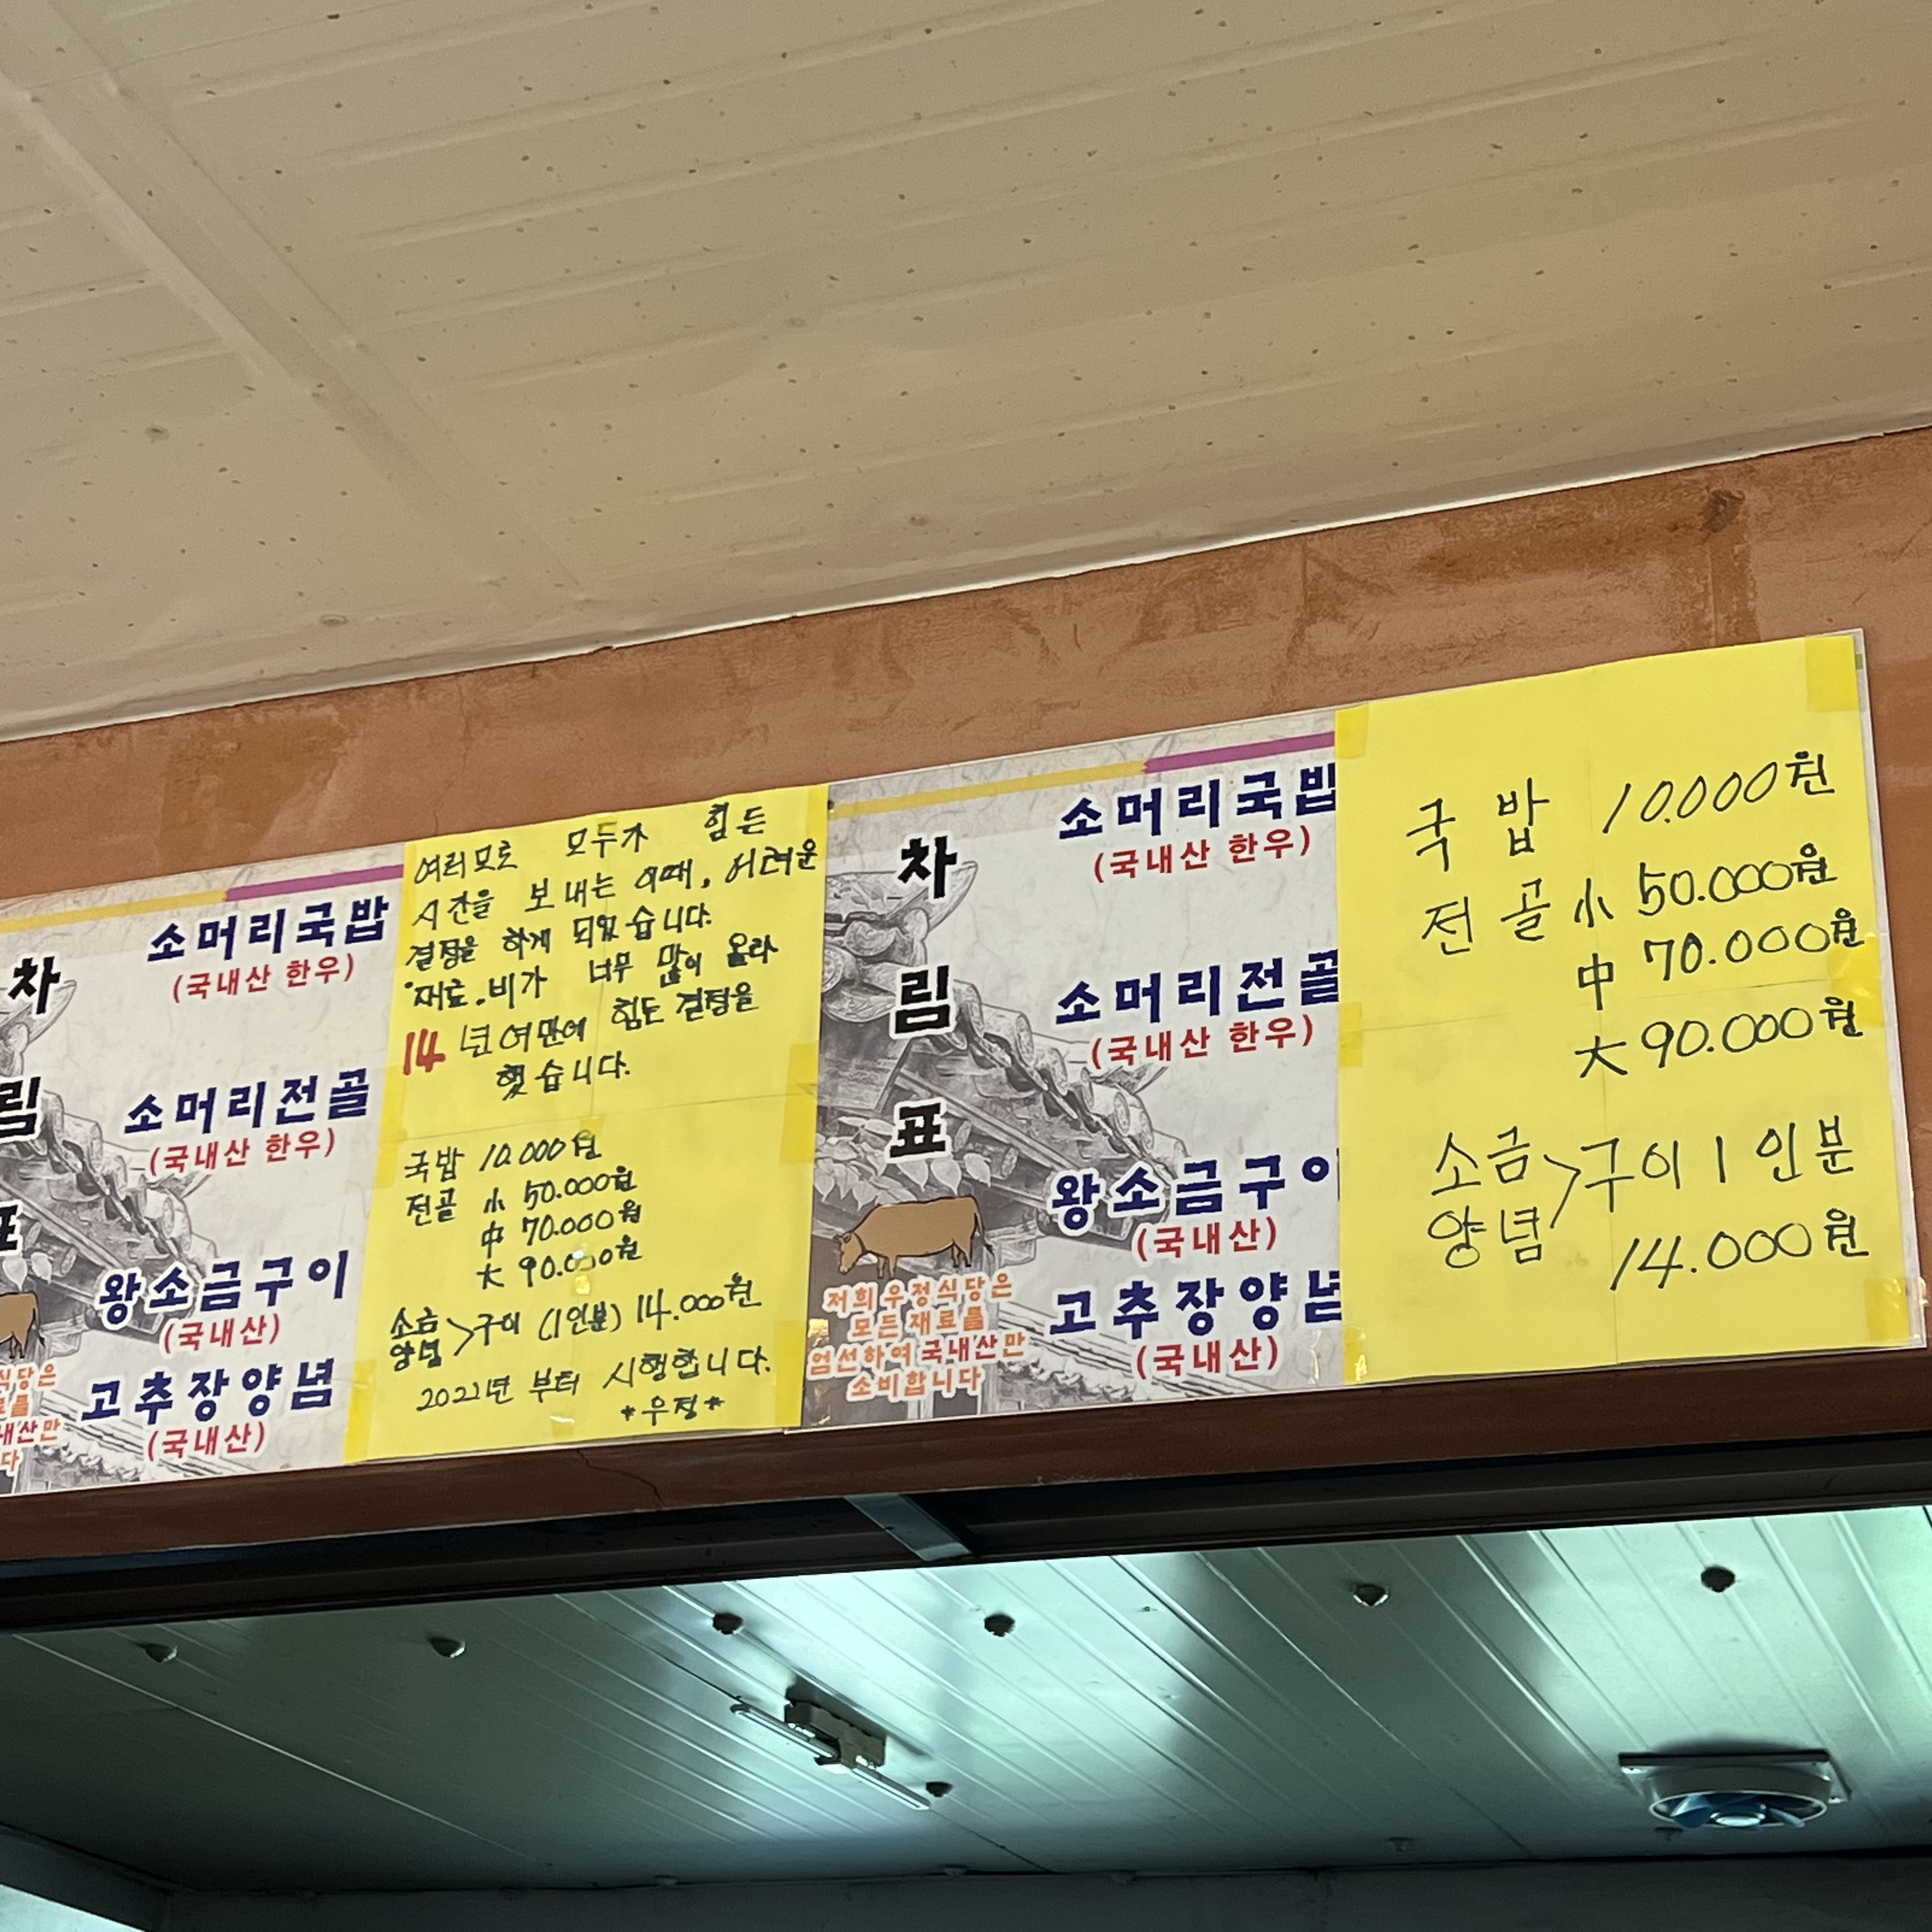 차
림
표
소머리국밥
(국내산 한우)
소머리전골
(국내산 한우)
왕소금구이
(국내산)
고추장양념
(국내산)
식당은
료를
내산만
다
여러모로 모두가 힘든
시간을 보내는 이때, 어려운
결정을 하게 되었습니다.
재료.비가 너무 많이 올라
14 년여만에 힘든 결정을
했습니다.
국밥 10.000원
전골 小 50.000원
中 70.000원
大 90.000원
소금
양념 > 구이 (1인분) 14.000원
2022년 부터 시행합니다.
*우정*
차
림
표
소머리국밥
(국내산 한우)
소머리전골
(국내산 한우)
왕소금구이
(국내산)
고추장양념
(국내산)
저희 우정식당은
모든 재료를
엄선하여 국내산만
소비합니다
국밥 10.000원
전골 小 50.000원
中 70.000원
大 90.000원
소금
양념 > 구이 1인분
14.000원